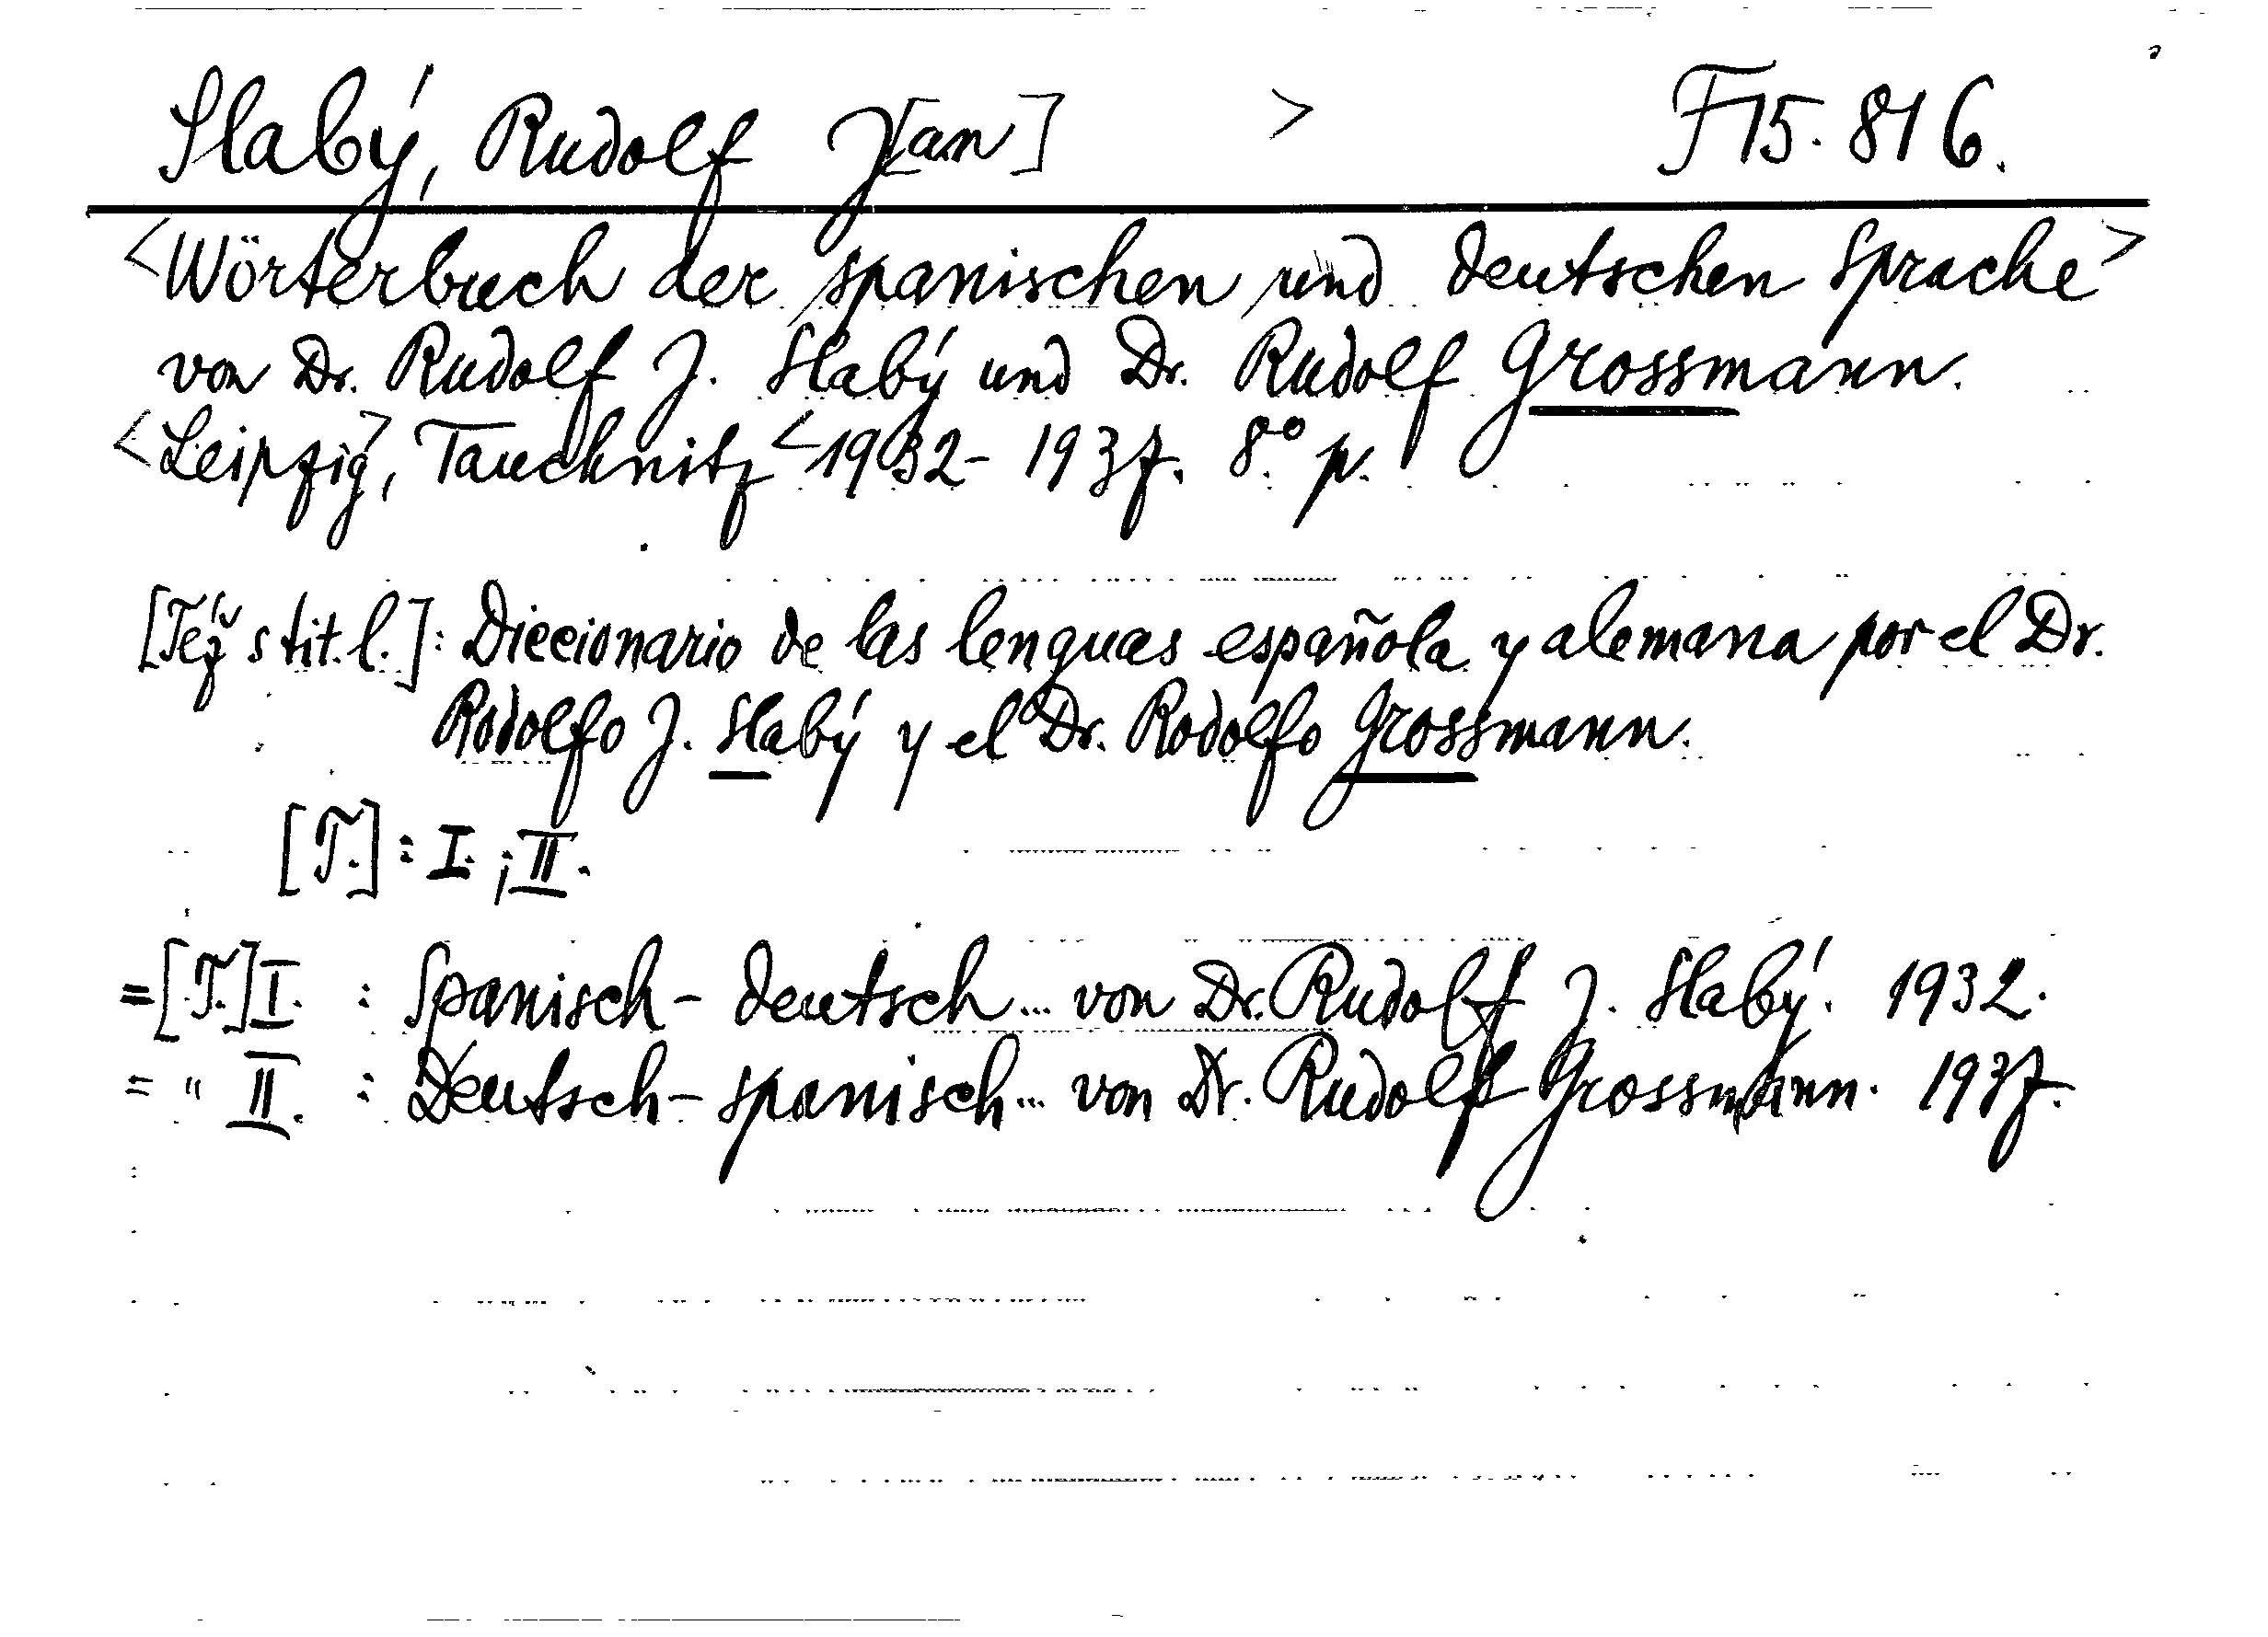 Slabý, Rudolf J[an] > F 15.816.
<Wörterbuch der spanischen und deutschen Sprache>
von Dr. Rudolf J. Slabý und Dr. Rudolf Grossmann.
<Leipzig>, Tauchnitz <1932-1937. 8° p.
[Též s tit. l.]: Diccionario de las lenguas española y alemana por el Dr.
Rodolfo J. Slabý y el Dr. Rodolfo Grossmann.
[T.]: I.; II.
=[T.] I. : Spanisch-deutsch... von Dr. Rudolf J. Slabý. 1932.
= " II. : Deutsch-spanisch... von Dr. Rudolf Grossmann. 1937.